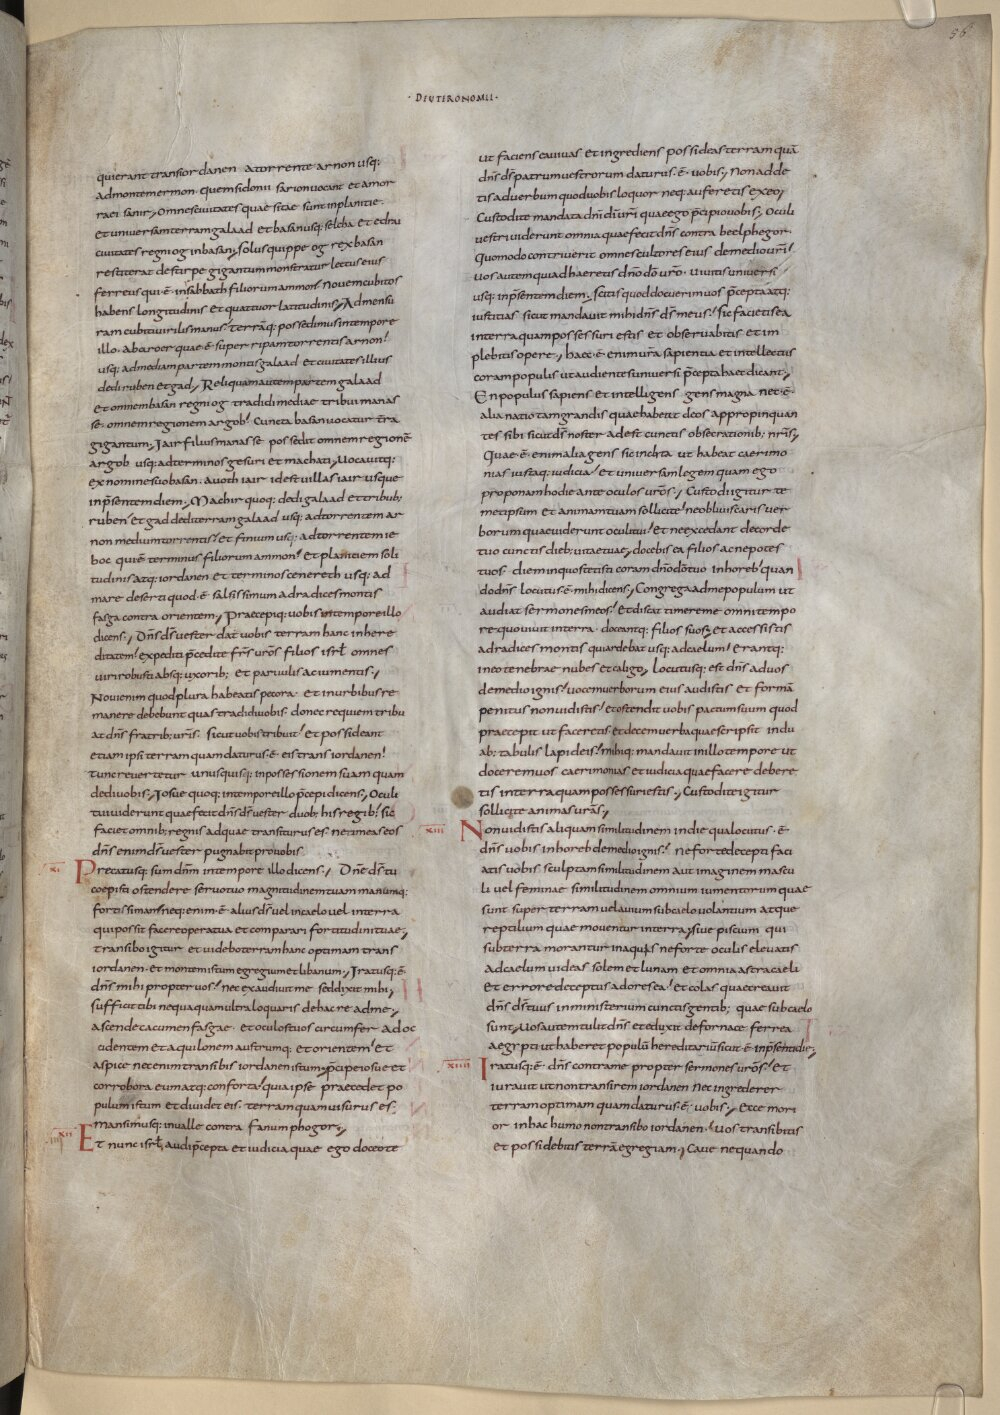 · DEUTERONOMII ·
86
qui erant trans iordanen a torrente arnon usq;
ad montem ermon· quem sidonii sarion uocant et amor
raei sanir; Omnes ciuitates quae sitae sunt in planitie·
et uniuersam terram galaad et basan usq; selcha et edrai
ciuitates regni og in basan; solus quippe og rex basan
restiterat de stirpe gigantum monstratur lectus eius
ferreus qui ·ē· in sabbath filiorum ammon· Nouem cubitos
habens longitudinis et quattuor latitudinis; Ad mensu
ram cubiti uirilis manus· terrāq; possedimus in tempore
illo· ab aroer quae ·ē· super ripam torrentis arnon·
usq; ad mediam partem montis galaad et ciuitates illius
dedi ruben et gad; Reliquam autem partem galaad
et omnem basan regni og tradidi mediae tribui manas
se· omnem regionem argob· Cuncta basan uocatur tr̄a
gigantum; Iair filius manasse possedit omnem regionē
argob usq; ad terminos gesuri et machati; Uocauitq;
ex nomine suo basan· auoth iair id est uillas iair usque
in p̄sentem diem; Machir quoq; dedi galaad et tribub;
ruben et gad dedi terram galaad usq; ad torrentem ar
non medium torrentis· et finium usq; ad torrentem ie
boc qui ē terminus filiorum ammon· Et planitiem soli
tudinis atq; iordanen et terminos cenereth usq; ad
mare deserti quod ·ē· salsissimum ad radices montis
fasga contra orientem; Praecepiq; uobis in tempore illo
dicens; Dn̄s ds̄ uester dat uobis terram hanc in here
ditatem· expediti p̄cedite fr̄s ur̄os filios isrl̄ omnes
uiri robusti absq; uxorib; et paruulis ac iumentis;
Noui enim quod plura habeatis pecora· et in urbibus re
manere debebunt quas tradidi uobis· donec requiem tribu
at dn̄s fratrib; ur̄is· sicut uobis tribuit· et possideant
etiam ipsi terram quam daturus ·ē· eis trans iordanen·
tunc reuertetur unusquisq; in possessionem suam quam
dedi uobis; Iosue quoq; in tempore illo p̄cepi dicens; Oculi
tui uiderunt quae fecit dn̄s ds̄ uester duob; his regib; sic
faciet omnib; regnis ad quae transiturus es· ne timeas eos
dn̄s enim ds̄ uester pugnabit pro uobis·
xi Precatusq; sum dn̄m in tempore illo dicens; Dn̄e ds̄ tu
coepisti ostendere seruo tuo magnitudinem tuam manumq;
fortissimam neq; enim ·ē· alius ds̄ uel in caelo uel in terra
qui possit facere opera tua et comparari fortitudini tuae;
transibo igitur et uidebo terram hanc optimam trans
iordanen· et montem istum egregium et libanum; Iratusq; ·ē·
dn̄s mihi propter uos· nec exaudiuit me sed dixit mihi;
sufficit tibi nequaquam ultra loquaris de hac re ad me;
ascende cacumen fasgae· et oculos tuos circumfer ad oc
cidentem et aquilonem austrumq; et orientem· et
aspice nec enim transibis iordanen istum; p̄cipe iosue et
corrobora eum atq; conforta· quia ipse praecedet po
pulum istum et diuidet eis· terram quam uisurus es·
mansimusq; in ualle contra fanum phogor;
xii Et nunc isrl̄ audi p̄cepta et iudicia quae ego doceo te
ut faciens ea uiuas et ingrediens possideas terram quā
dn̄s ds̄ patrum uestrorum daturus ·ē· uobis; Non adde
tis ad uerbum quod uobis loquor neq; auferetis ex eo;
Custodite mandata dn̄i di ur̄i quae ego p̄cipio uobis; Oculi
uestri uiderunt omnia quae fecit dn̄s contra beelphegor·
quomodo contriuerit omnes cultores eius de medio ur̄i·
uos autem qui adhaeretis dn̄o dō ur̄o· uiuitis uniuersi
usq; in p̄sentem diem; scitis quod docuerim uos p̄cepta atq;
iustitias sicut mandauit mihi dn̄s ds̄ meus· sic facietis ea
in terra quam possessuri estis et obseruabitis et im
plebitis opere; haec ·ē· enim ur̄a sapientia et intellectus
coram populis ut audientes uniuersi p̄cepta haec dicant;
En populus sapiens et intelligens gens magna nec ·ē·
alia natio tam grandis quae habeat deos appropinquan
tes sibi sicut ds̄ noster adest cunctis obsecrationib; nr̄is;
Quae ·ē· enim alia gens sic inclita ut habeat caerimo
nias iustaq; iudicia· et uniuersam legem quam ego
proponam hodie ante oculos ur̄os; Custodi igitur te
metipsum et animam tuam sollicite· ne obliuiscaris uer
borum quae uiderunt oculi tui· et ne excedant de corde
tuo cunctis dieb; uitae tuae; docebis ea filios ac nepotes
tuos· diem in quo stetisti coram dn̄o dō tuo in horeb· quan
do dn̄s locutus ·ē· mihi dicens; Congrega ad me populum ut
audiat sermones meos· Et discat timere me omni tempo
re quo uiuit in terra· doceantq; filios suos; et accessistis
ad radices montis qui ardebat usq; ad caelum· Erantq;
in eo tenebrae nubes et caligo; Locutusq; est dn̄s ad uos
de medio ignis· uocem uerborum eius audistis et formā
penitus non uidistis· et ostendit uobis pactum suum quod
praecepit ut faceretis· et decem uerba quae scripsit in du
ab; tabulis lapideis· mihiq; mandauit in illo tempore ut
docerem uos caerimonias et iudicia quae facere debere
tis in terra quam possessuri estis; Custodite igitur
sollicite animas ur̄as;
xiii Non uidistis aliquam similitudinem in die qua locutus ·ē·
dn̄s uobis in horeb de medio ignis· Ne forte decepti faci
atis uobis sculptam similitudinem aut imaginem mascu
li uel feminae similitudinem omnium iumentorum quae
sunt super terram uel auium sub caelo uolantium atque
reptilium quae mouentur in terra; siue piscium qui
sub terra morantur in aquis ne forte oculis eleuatis
ad caelum uideas solem et lunam et omnia astra caeli
et errore deceptus adores ea· et colas quae creauit
dn̄s ds̄ tuus in ministerium cunctis gentib; quae sub caelo
sunt; Uos autem tulit dn̄s et eduxit de fornace ferrea
aegypti ut haberet populū hereditariū sicut ·ē· in p̄senti die;
xiiii Iratusq; ·ē· dn̄s contra me propter sermones ur̄os· Et
iurauit ut non transirem iordanen nec ingrederer
terram optimam quam daturus ·ē· uobis; Ecce mori
or in hac humo non transibo iordanen· Uos transibitis
et possidebitis terrā egregiam; Caue ne quando